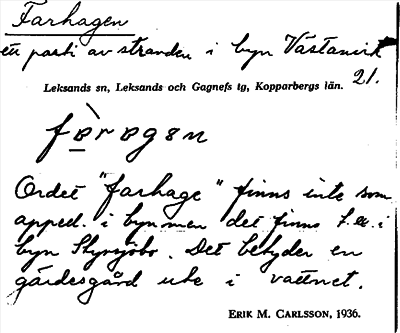 Farhagen
ett parti av stranden i byn Västanvik
21.
Leksands sn, Leksands och Gagnefs tg, Kopparbergs län.
fàragan
Ordet "farhage" finns inte som
apped. i byn men det finns t. ex. i
byn Styrsjöbo. Det betyder en
gärdesgård ute i vattnet.
ERIK M. CARLSSON, 1936.